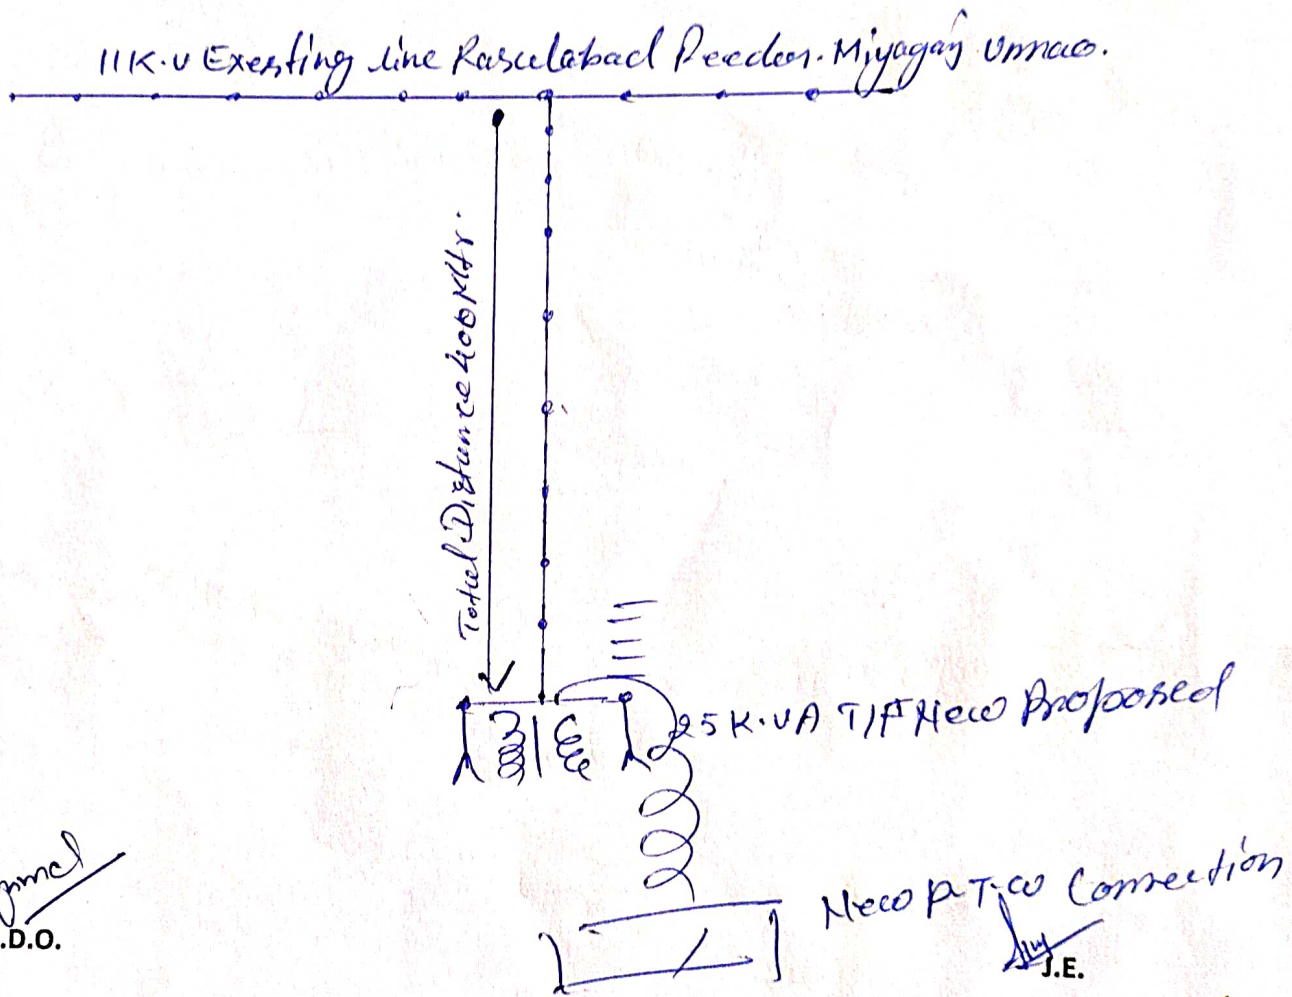 11K.V Existing line Rasulabad Feeder. Miyaganj Unnao.
Total Distance 400 Mtr.
25 K.VA T/F New Proposed
New P.T.W Connection
.D.O.
J.E.